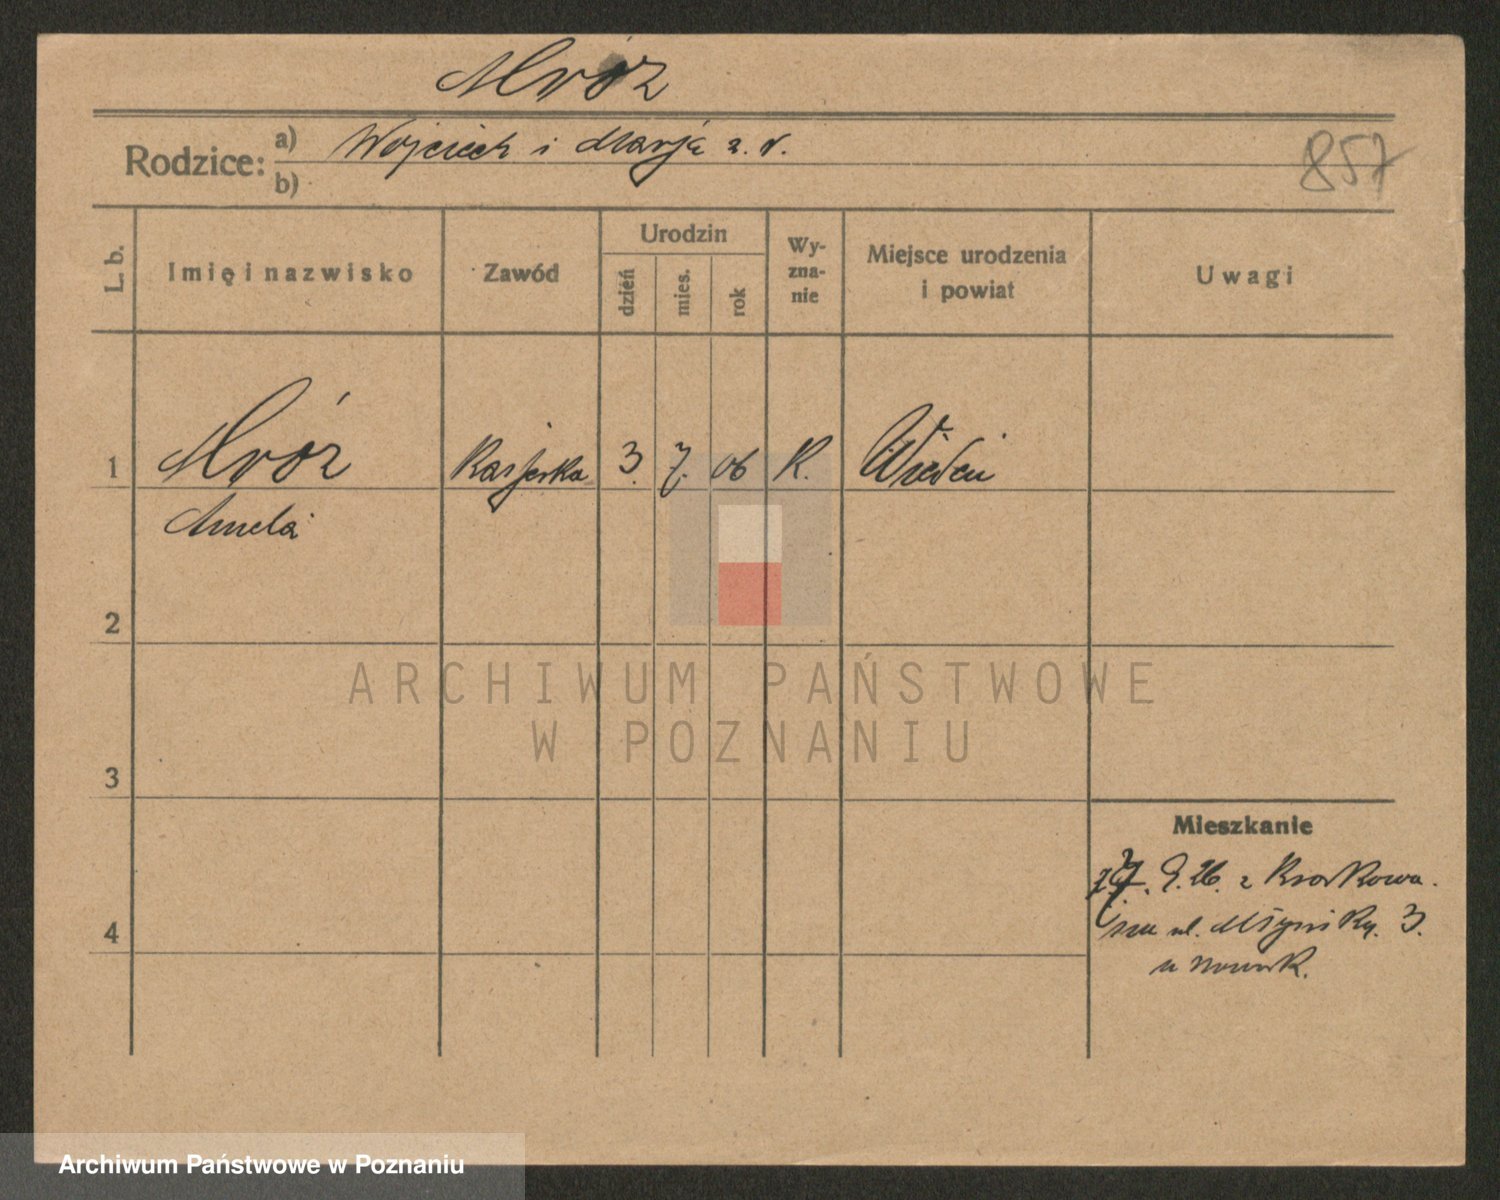 Mróz
Rodzice: a) Wojciech i Marja z. d.
b)
857
L. b.
Imię i nazwisko
Zawód
Urodzin
dzień
mies.
rok
Wy-
zna-
nie
Miejsce urodzenia
i powiat
Uwagi
1 Mróz Kasjerka 3. 7. 06 K. Wiedeń
Amelia
2
3
4
Mieszkanie
9.26. z Krakowa.
na ul. Młyńską. 3.
u Nowak.
ARCHIWUM PAŃSTWOWE
W POZNANIU
Archiwum Państwowe w Poznaniu